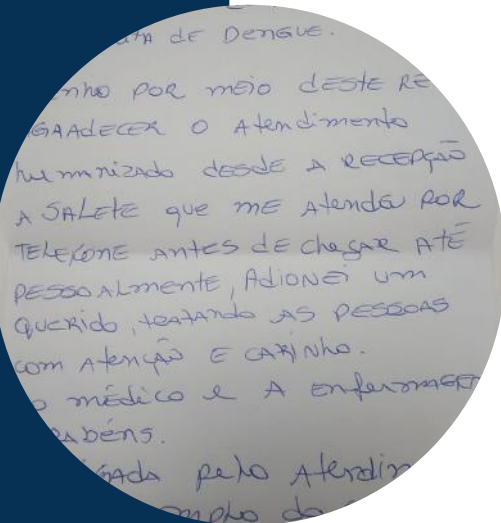 DE DENGUE.
POR MEIO DESTE RE
O Atendimento
DESDE A RECEPÇÃO
A SALETE que ME Atendeu POR
TELEFONE ANTES DE chegar ATÉ
PESSOALMENTE, ADIONEI um
QUERIDO, tRATANDO AS PESSOAS
COM AtENÇÃO E CARINHO.
médico e A EnfermAGE
ABÉNS.
pelo Atendim